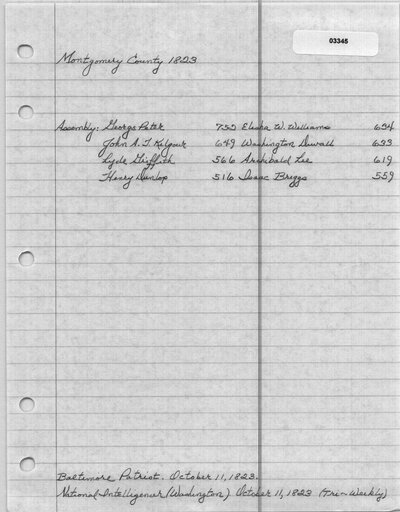 03345
Montgomery County 1823
Assembly: George Peter 752 Elisha W. Williams 654
John A. T. Kilgour 649 Washington Duvall 633
Lyde Griffith 566 Archibald Lee 619
Henry Dunlop 516 Isaac Briggs 559
Baltimore Patriot. October 11, 1823.
National Intelligencer (Washington) October 11, 1823 (Tri-Weekly)